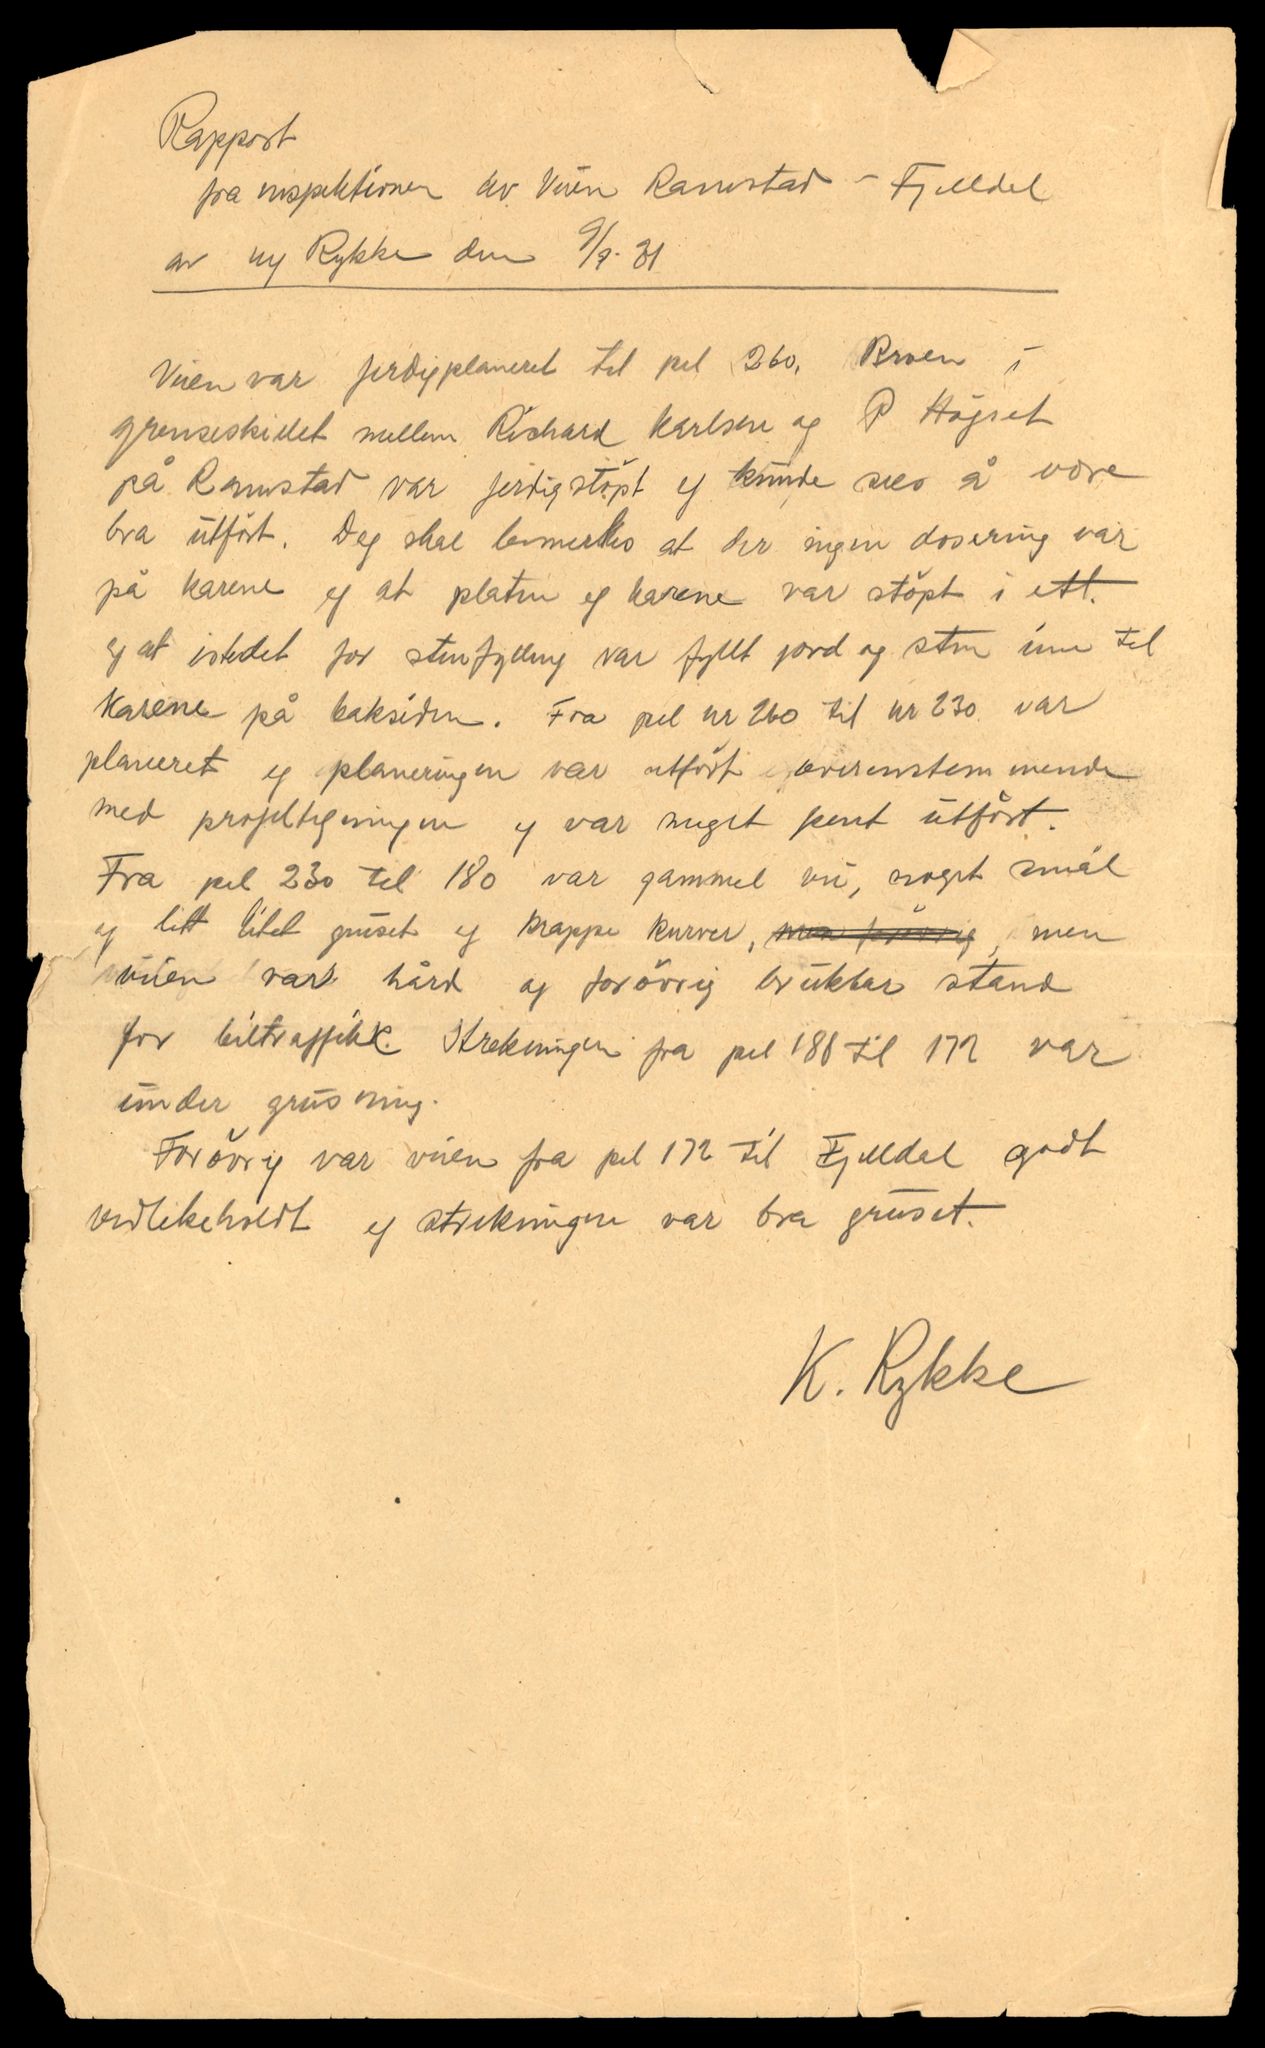 Rapport
fra inspektionen av Veien Ramstad - Fjelldal
av ing Rykke den 9/9. 31
Veien var ferdigplaneret til pel 260. Broen i
grenseskillet mellem Richard Karlsen og P Högset
på Ramstad var ferdigstöpt og kunde sees å være
bra utfört. Deg skal bemerkes at der ingen dosering var
på karene og at platen og karene var stöpt i ett.
og at istedet for stenfylling var fyllt jord og sten inn til
karene på baksiden. Fra pel nr 260 til nr 230 var
planeret og planeringen var utfört overenstemmende
med profiltegningen og var meget pent utfört.
Fra pel 230 til 180 var gammel vei, noget smal
og litt litet gruset og krappe kurver, men forövrig, men
veien var hård og forövrig brukbar stand
for biltraffikk. Strekningen fra pel 188 til 172 var
under grusning.
Forövrig var veien fra pel 172 til Fjelldal godt
vedlikeholdt og strekningen var bra gruset.
K. Rykke